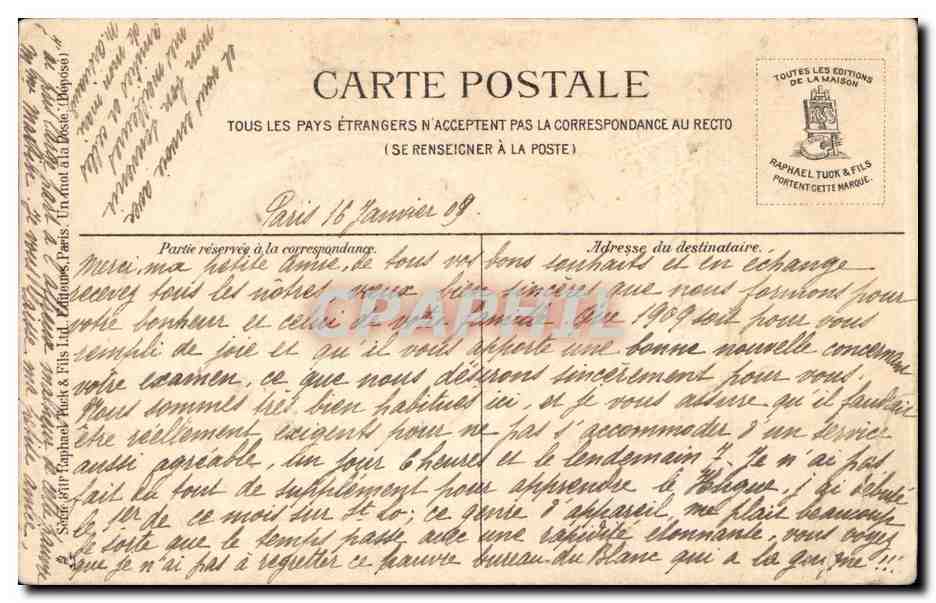 CARTE POSTALE
TOUS LES PAYS ÉTRANGERS N'ACCEPTENT PAS LA CORRESPONDANCE AU RECTO
(SE RENSEIGNER À LA POSTE)
TOUTES LES EDITIONS
DE LA MAISON
RAPHAEL TUCK & FILS
PORTENT CETTE MARQUE.
Paris 16 Janvier 09.
Partie réservée à la correspondance.
Adresse du destinataire.
Merci, ma petite amie, de tous vos bons souhaits et en échange
recevez tous les nôtres, vœux bien sincères que nous formons pour
votre bonheur et celui de votre famille. Que 1909 soit pour vous
rempli de joie et qu'il vous apporte une bonne nouvelle concernant
votre examen, ce que nous désirons sincèrement pour vous.
Nous sommes très bien habitués ici, et je vous assure qu'il faudrait
être réellement exigents pour ne pas s'accommoder d'un service
aussi agréable, un jour 6 heures et le lendemain 7. Je n'ai pas
fait du tout de supplément pour apprendre le Hugue, j'ai débuté
le 1er de ce mois sur St-Lo; ce genre d'appareil me plait beaucoup
de sorte que le temps passe avec une rapidité étonnante, vous voyez
que je n'ai pas à regretter ce pauvre bureau du Blanc qui a la guigne!!!
Raphael Tuck & Fils Ltd. Editeurs, Paris. Un mot à la Poste. (Déposé)
CPAPHIL